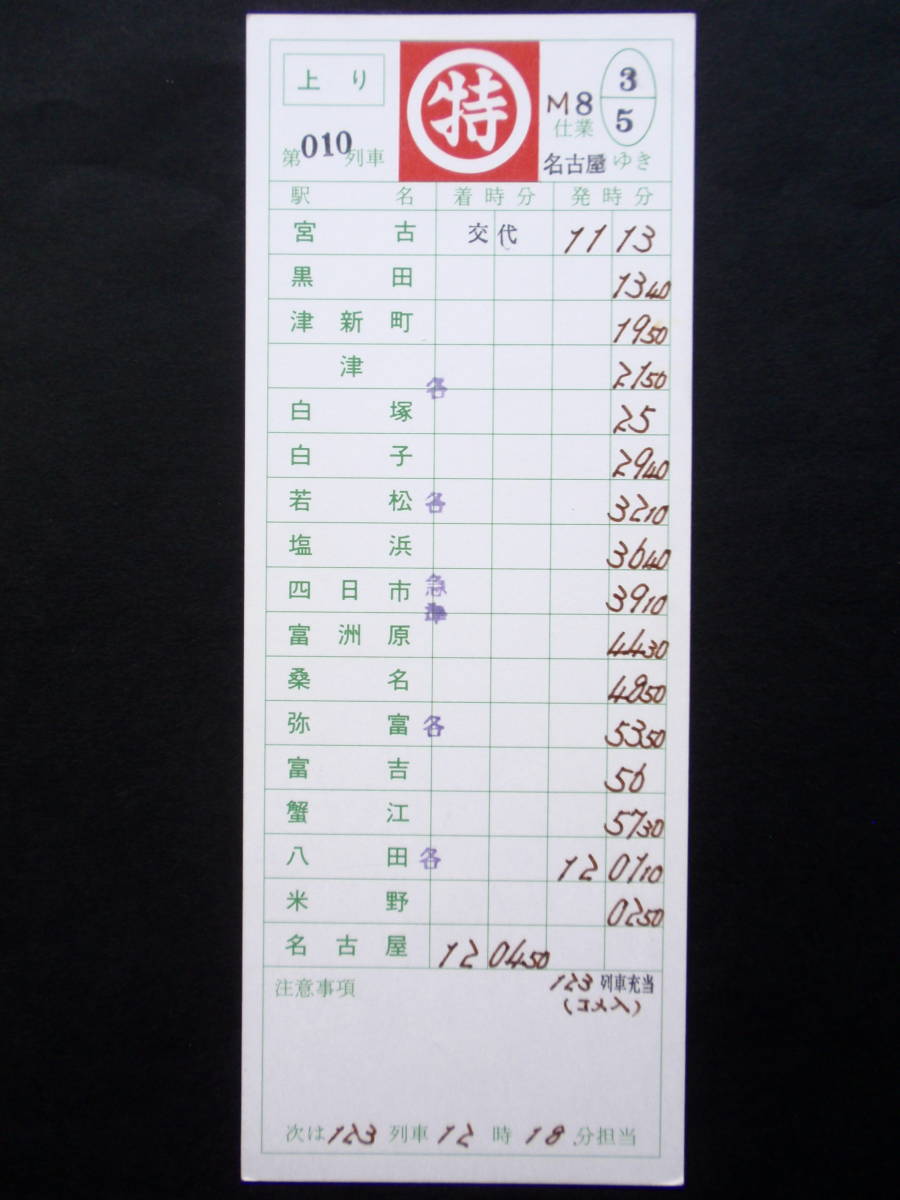 上り 特 M8 3
仕業 5
第010列車 名古屋ゆき
駅名 着時分 発時分
宮古 交代 11 13
黒田 1340
津新町 1950
津 2150
各
白塚 25
白子 2940
若松 各 3210
塩浜 3640
四日市 急 3910
富洲原 4430
桑名 4850
弥富 各 5350
富吉 56
蟹江 5730
八田 各 12 0110
米野 0250
名古屋 12 0450
注意事項 123列車充当
(コメ入)
次は123列車12時18分担当